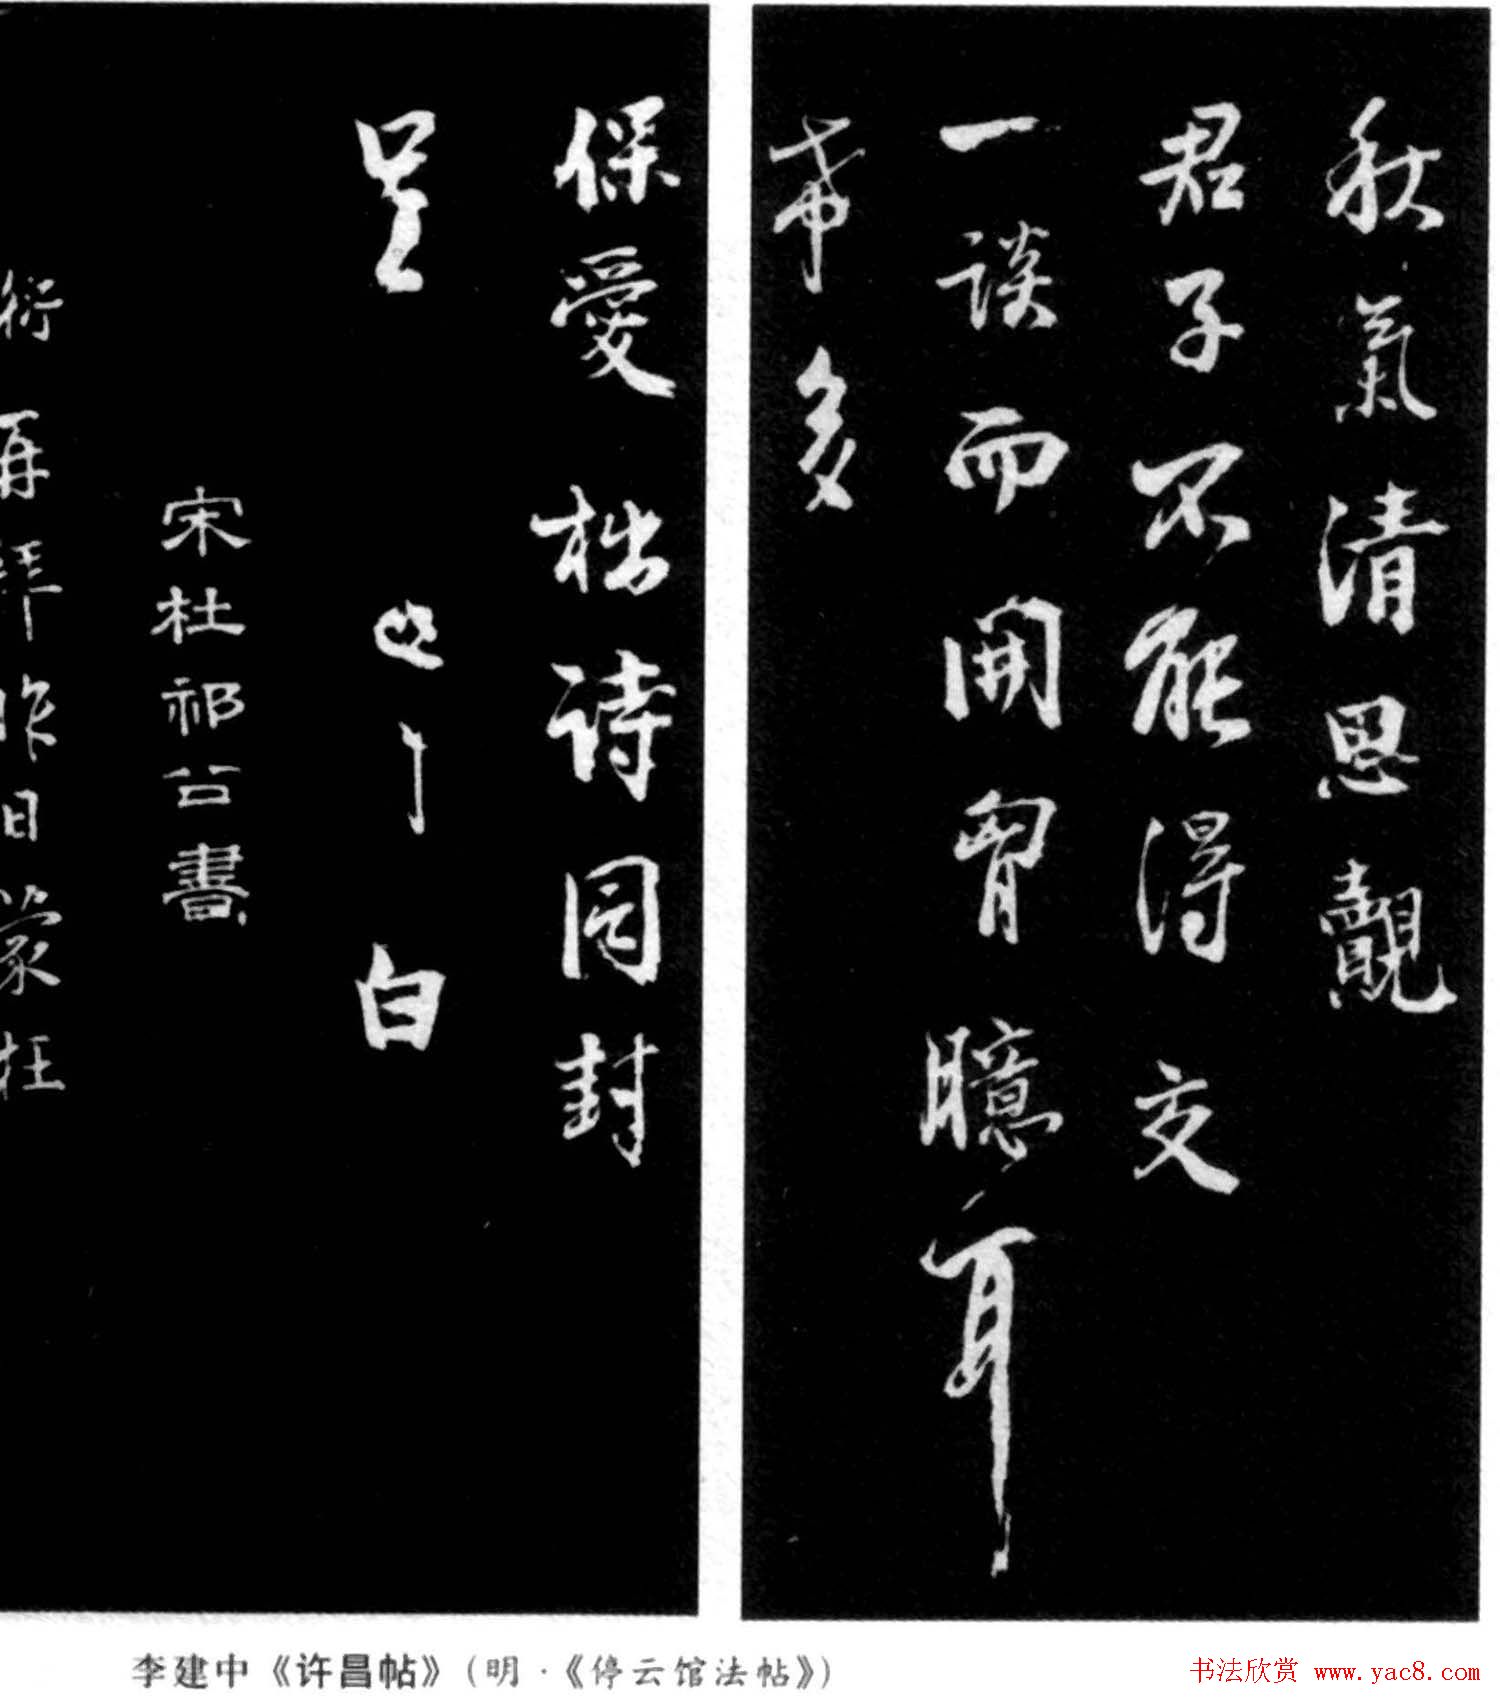 秋氣清思觀
君子不能得文
一談而開胷臆耳
希多
保愛拙詩同封
呈
白
宋杜祁公書
衍再拜昨日蒙枉
李建中《许昌帖》(明·《停云馆法帖》)
书法欣赏 www.yac8.com